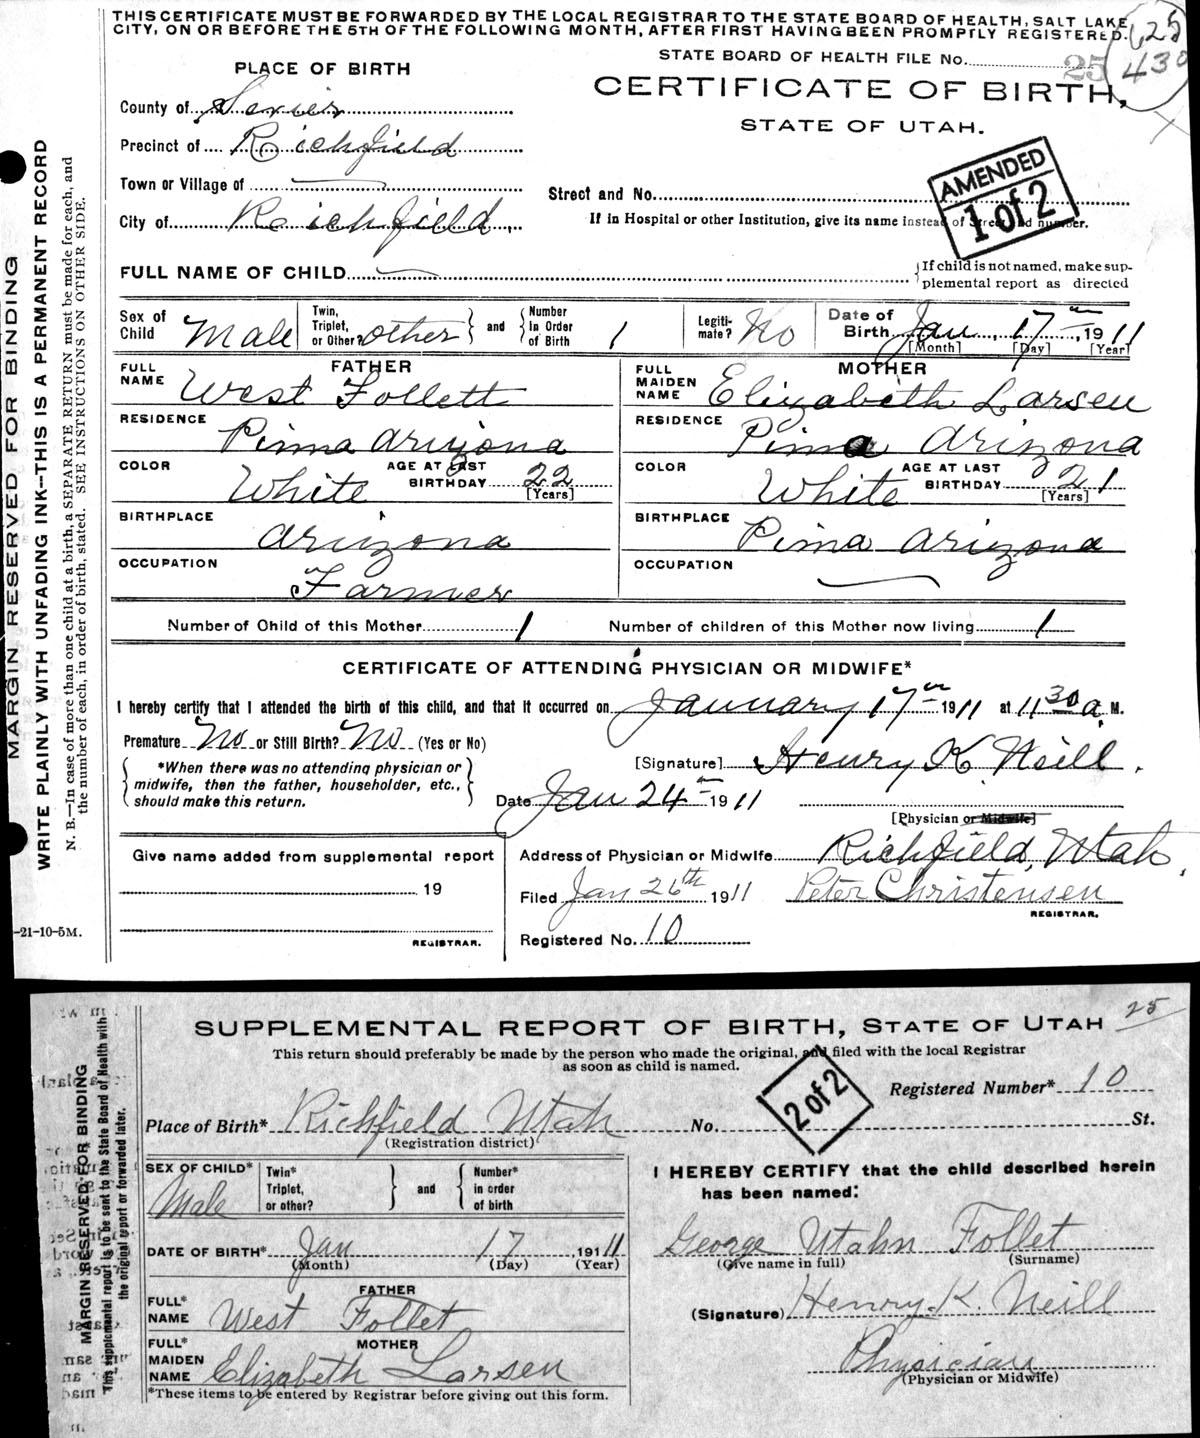 THIS CERTIFICATE MUST BE FORWARDED BY THE LOCAL REGISTRAR TO THE STATE BOARD OF HEALTH, SALT LAKE
CITY, ON OR BEFORE THE 5TH OF THE FOLLOWING MONTH, AFTER FIRST HAVING BEEN PROMPTLY REGISTERED.
STATE BOARD OF HEALTH FILE No. 25
430
PLACE OF BIRTH
CERTIFICATE OF BIRTH,
STATE OF UTAH.
County of Sevier
Precinct of Richfield
Town or Village of
City of Richfield
Street and No.
If in Hospital or other Institution, give its name instead of Street and number.
AMENDED
1 of 2
FULL NAME OF CHILD
If child is not named, make sup-
plemental report as directed
Sex of Child Male
Twin, Triplet, or Other? other and Number in Order of Birth 1
Legiti-mate? No
Date of Birth Jan 17th, 1911
[Month] [Day] [Year]
FATHER
FULL NAME West Follett
RESIDENCE Pima Arizona
COLOR White AGE AT LAST BIRTHDAY 22 [Years]
BIRTHPLACE Arizona
OCCUPATION Farmer
MOTHER
FULL MAIDEN NAME Elizabeth Larsen
RESIDENCE Pima Arizona
COLOR White AGE AT LAST BIRTHDAY 21 [Years]
BIRTHPLACE Pima Arizona
OCCUPATION
Number of Child of this Mother 1 Number of children of this Mother now living 1
CERTIFICATE OF ATTENDING PHYSICIAN OR MIDWIFE*
I hereby certify that I attended the birth of this child, and that it occurred on January 17th 1911 at 11 30 a. M.
Premature No or Still Birth? No (Yes or No)
*When there was no attending physician or
midwife, then the father, householder, etc.,
should make this return.
[Signature] Henry K. Neill.
Date Jan 24th 1911
[Physician or Midwife]
Give name added from supplemental report
19
REGISTRAR.
Address of Physician or Midwife Richfield, Utah.
Filed Jan 26th 1911 Peter Christensen
REGISTRAR.
Registered No. 10
MARGIN RESERVED FOR BINDING
WRITE PLAINLY WITH UNFADING INK—THIS IS A PERMANENT RECORD
N. B.—In case of more than one child at a birth, a SEPARATE RETURN must be made for each, and
the number of each, in order of birth, stated. SEE INSTRUCTIONS ON OTHER SIDE.
-21-10-5M.
25
SUPPLEMENTAL REPORT OF BIRTH, STATE OF UTAH
This return should preferably be made by the person who made the original, and filed with the local Registrar
as soon as child is named.
2 of 2
Registered Number* 10
Place of Birth* Richfield Utah No. St.
(Registration district)
SEX OF CHILD* Male
Twin* Triplet, or other? and Number* in order of birth
DATE OF BIRTH* Jan 17, 1911
(Month) (Day) (Year)
FATHER
FULL* NAME West Follet
MOTHER
FULL* MAIDEN NAME Elizabeth Larsen
*These items to be entered by Registrar before giving out this form.
I HEREBY CERTIFY that the child described herein
has been named:
George Utahn Follet
(Give name in full) (Surname)
(Signature) Henry K. Neill
Physician
(Physician or Midwife)
MARGIN RESERVED FOR BINDING
This supplemental report is to be sent to the State Board of Health with
the original report or forwarded later.